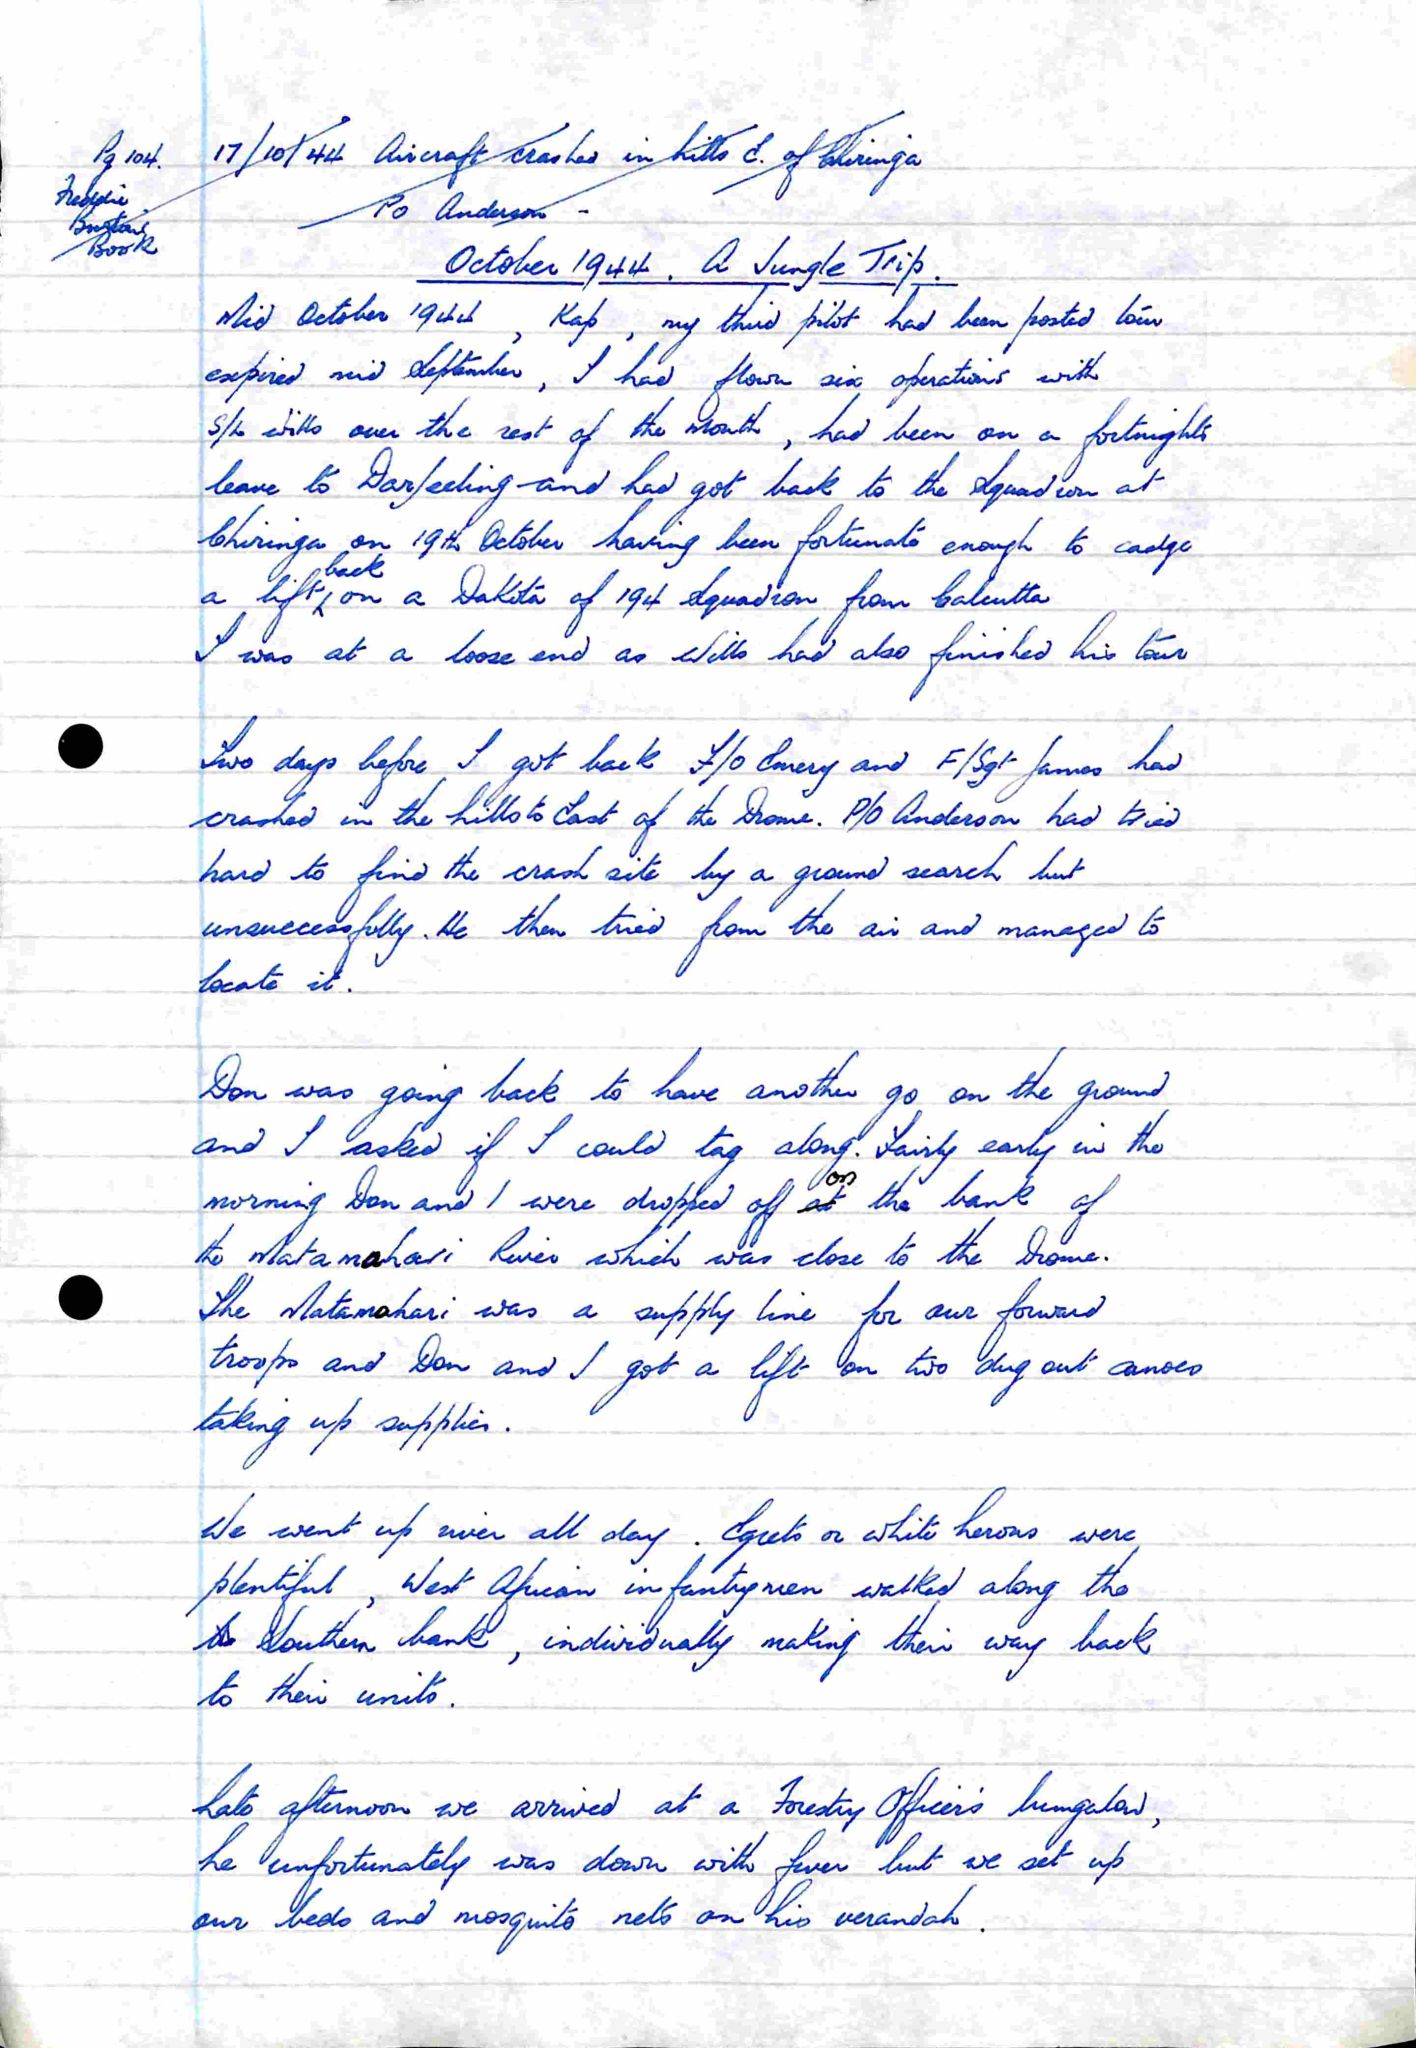 Pg 104. 17/10/44 Aircraft crashed in hills E. of Chiringa
Freddie
Book
PO Anderson -
October 1944. A Jungle Trip.
Mid October 1944, Kap, my third pilot had been posted tour
expired mid September, I had flown six operations with
S/L Wills over the rest of the month, had been on a fortnights
leave to Darjeeling and had got back to the Squadron at
Chiringa on 19th October having been fortunate enough to cadge
a lift back on a Dakota of 194 Squadron from Calcutta
I was at a loose end as Wills had also finished his tour
Two days before I got back F/O Emery and F/Sgt James had
crashed in the hills to East of the Drome. P/O Anderson had tried
hard to find the crash site by a ground search but
unsuccessfully. He then tried from the air and managed to
locate it.
Don was going back to have another go on the ground
and I asked if I could tag along. Fairly early in the
morning Don and I were dropped off at on the bank of
the Matamahari River which was close to the Drome.
The Matamahari was a supply line for our forward
troops and Don and I got a lift on two dug out canoes
taking up supplies.
We went up river all day. Egrets or white herons were
plentiful, West African infantrymen walked along the
the Southern bank, individually making their way back
to their units.
Late afternoon we arrived at a Forestry Officer's bungalow,
he unfortunately was down with fever but we set up
our beds and mosquito nets on his verandah.